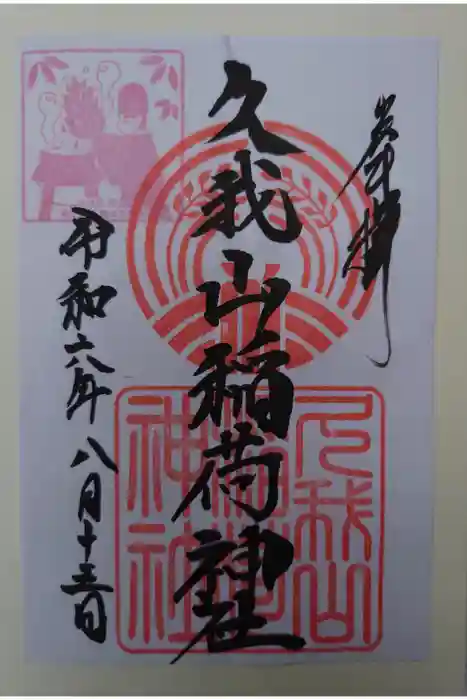 奉拝
久我山稲荷神社
令和六年八月十三日
久我山
稲荷
神社